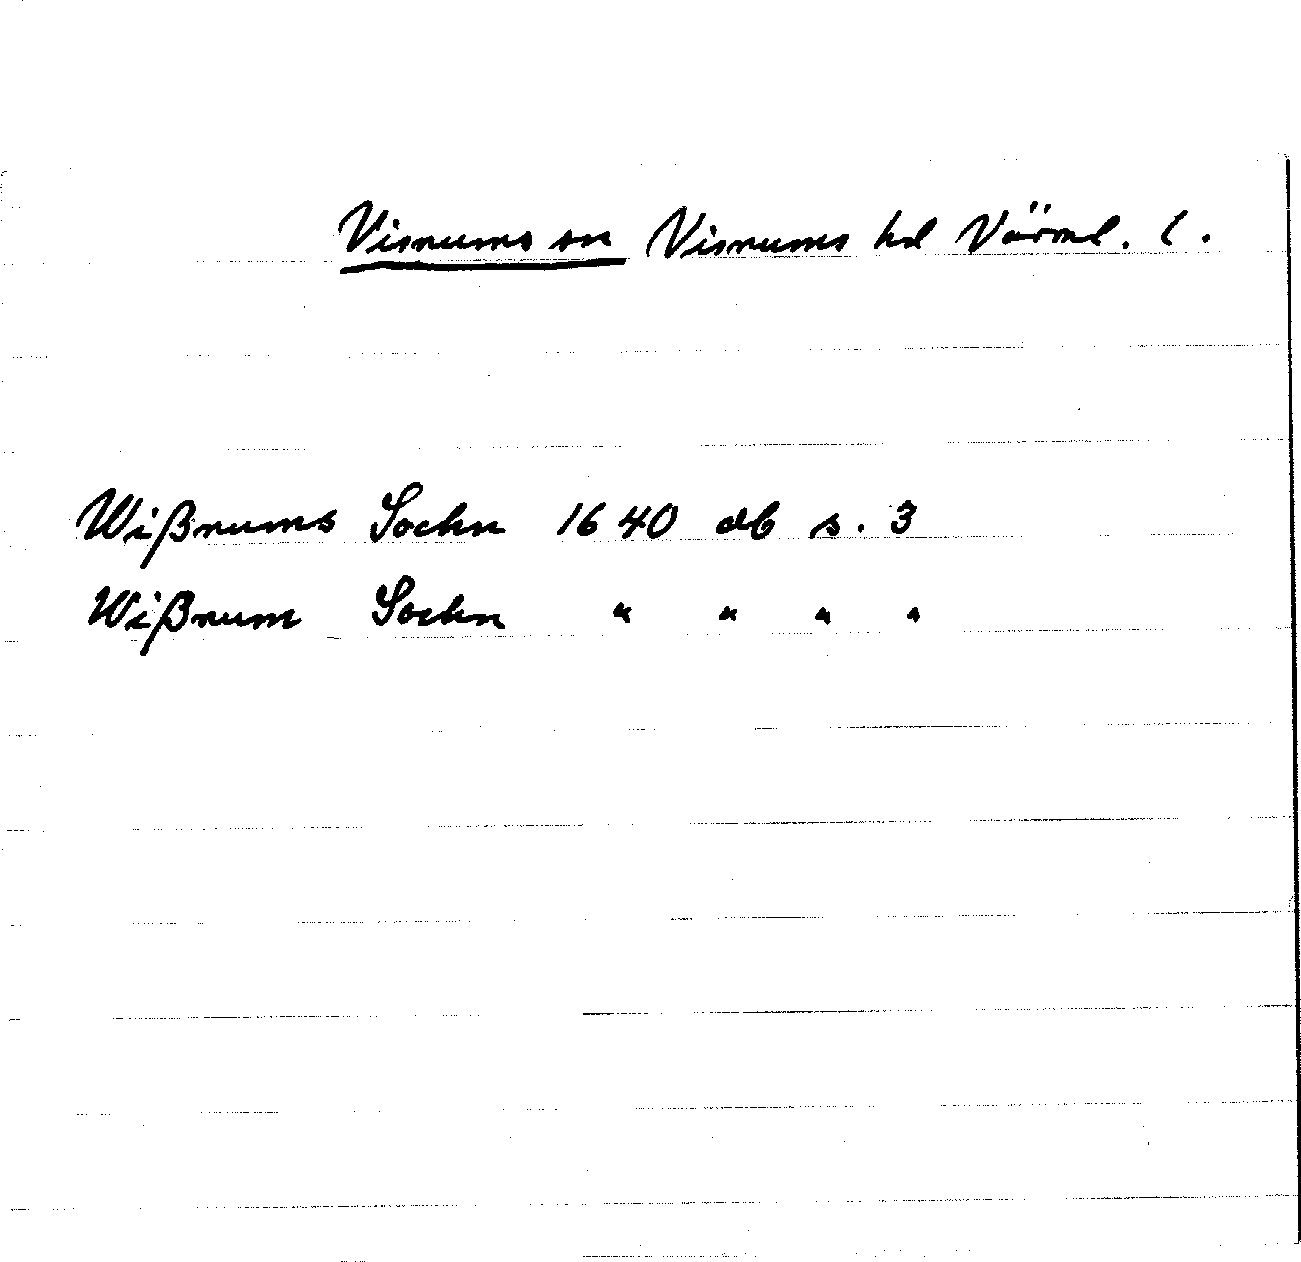 Visnums sn Visnums hd Värml. l.
Wißnums Sochn 1640 db s. 3
Wißnum Sochn " " " "